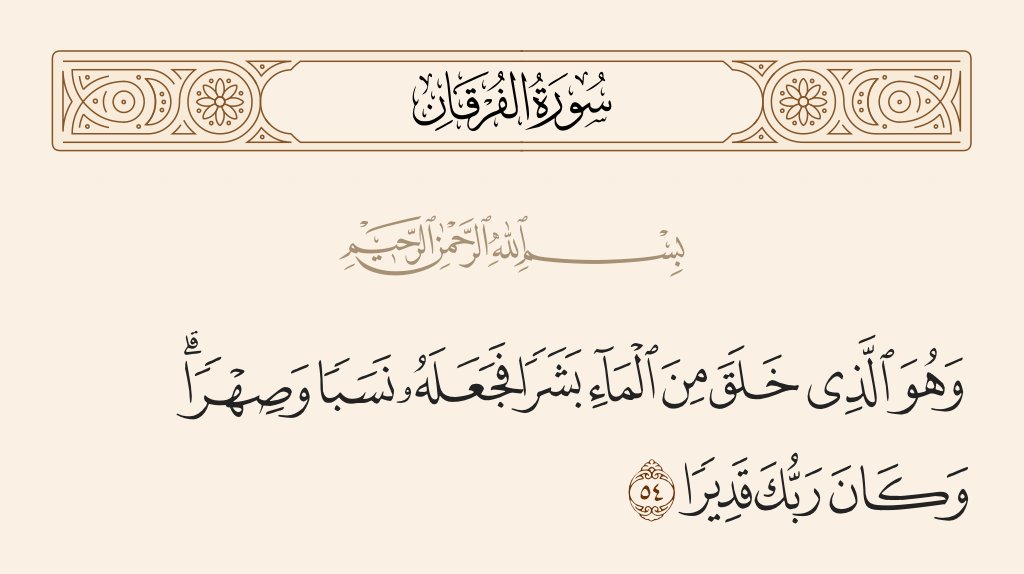 سُورَةُ الفُرْقَانِ
بِسْمِ ٱللَّهِ ٱلرَّحْمَٰنِ ٱلرَّحِيمِ
وَهُوَ ٱلَّذِى خَلَقَ مِنَ ٱلْمَآءِ بَشَرًا فَجَعَلَهُۥ نَسَبًا وَصِهْرًا ۗ
وَكَانَ رَبُّكَ قَدِيرًا ٥٤